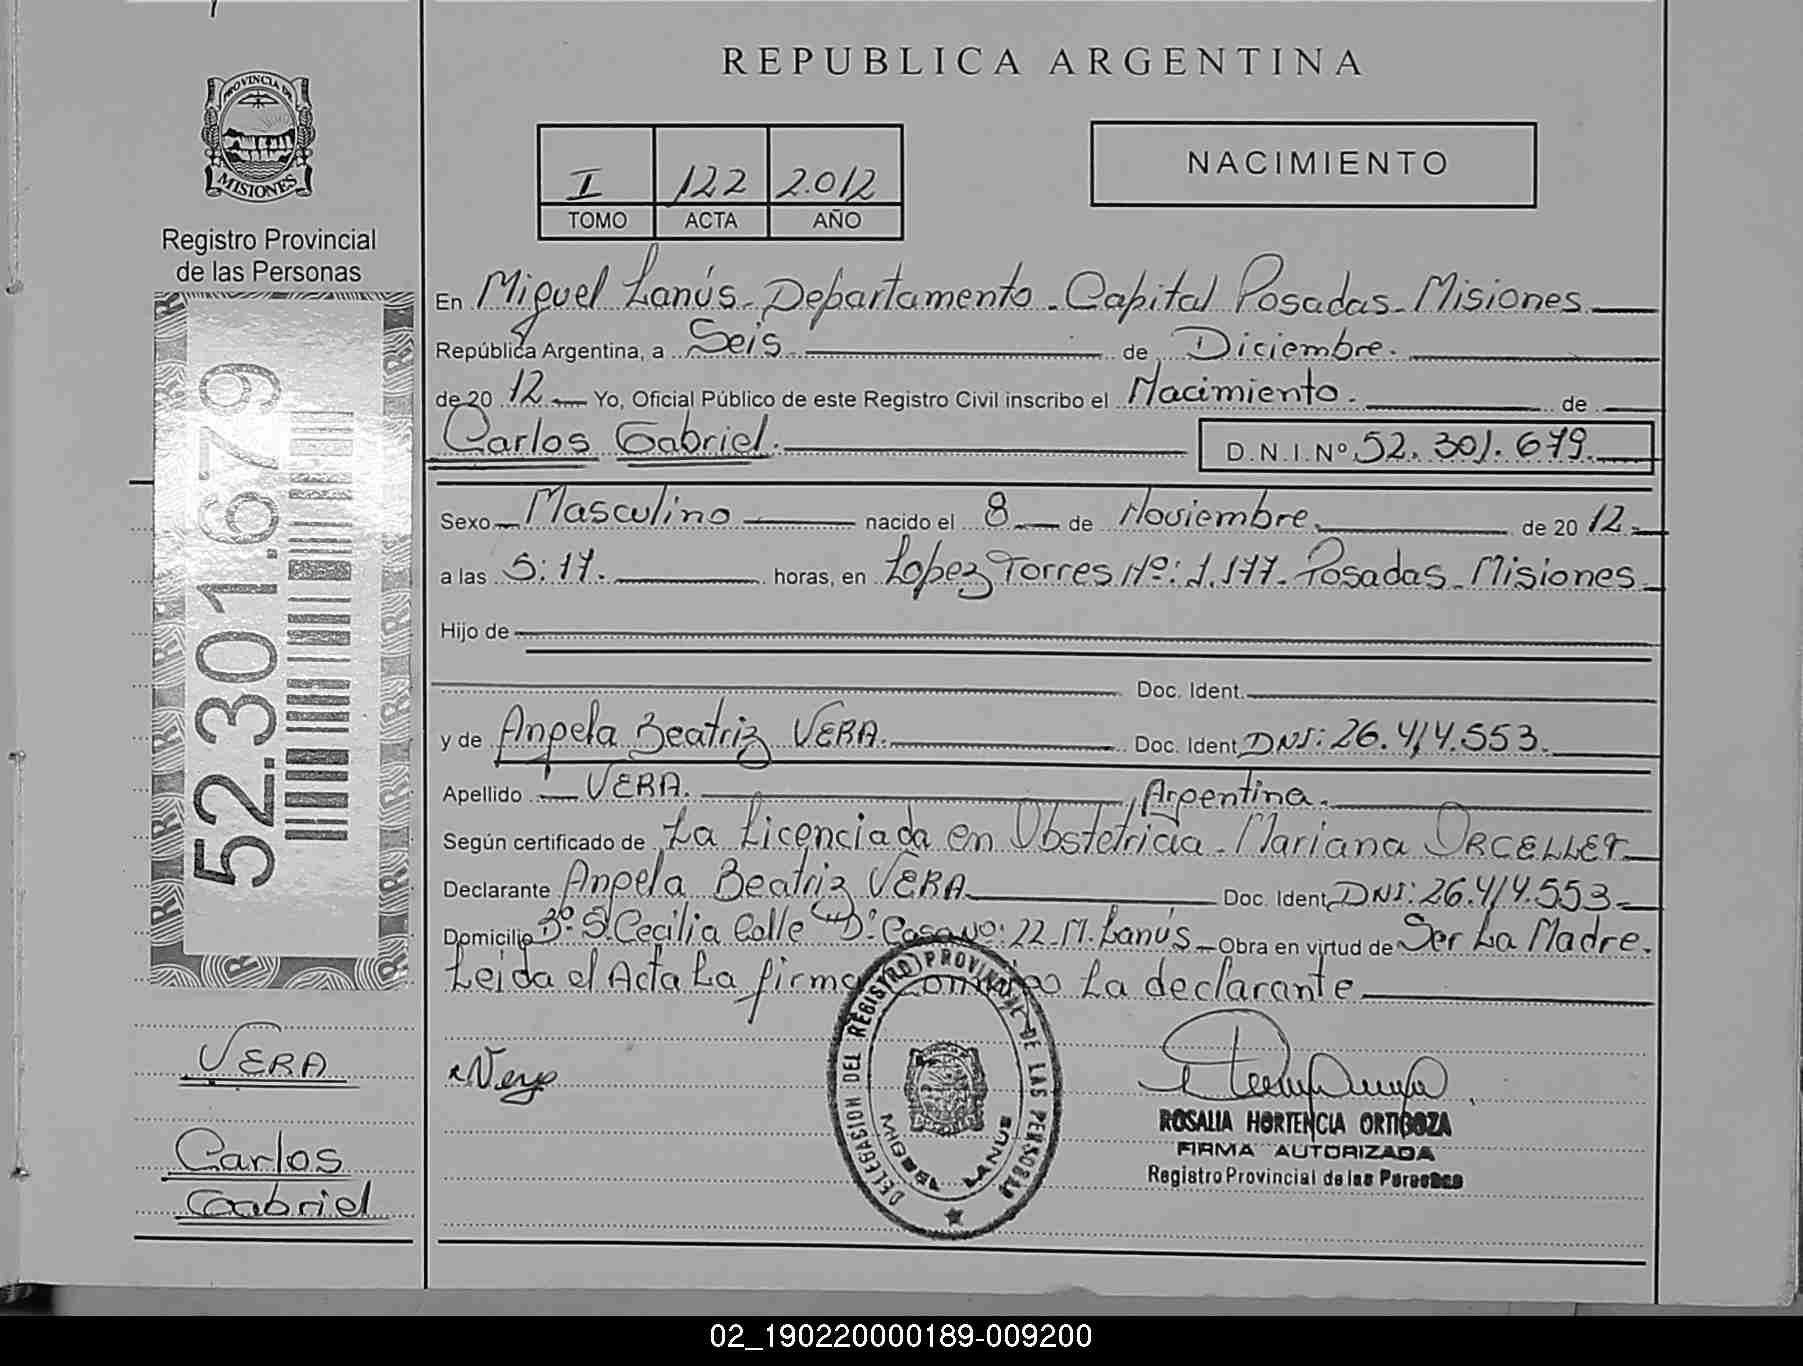 PROVINCIA DE
MISIONES
Registro Provincial
de las Personas
52.301.679
VERA
Carlos
Gabriel
REPUBLICA ARGENTINA
I 122 2.012
TOMO ACTA AÑO
NACIMIENTO
En Miguel Lanús - Departamento - Capital Posadas - Misiones
República Argentina, a Seis de Diciembre.
de 20 12 Yo, Oficial Público de este Registro Civil inscribo el Nacimiento. de
Carlos Gabriel. D.N.I.Nº 52.301.679.
Sexo Masculino nacido el 8 de Noviembre de 20 12
a las 5:17. horas, en Lopez Torres Nº: 1.177 - Posadas - Misiones
Hijo de
Doc. Ident.
y de Angela Beatriz VERA. Doc. Ident. DNI: 26.414.553.
Apellido VERA. Argentina.
Según certificado de La Licenciada en Obstetricia - Mariana ORCELLET
Declarante Angela Beatriz VERA Doc. Ident. DNI: 26.414.553
Domicilio Bº. S. Cecilia Calle "D" Casa Nº: 22 M. Lanús - Obra en virtud de Ser La Madre.
Leida el Acta La firma La declarante
Vera
DELEGACION DEL REGISTRO PROVINCIAL DE LAS PERSONAS
MIGUEL LANUS
ROSALIA HORTENCIA ORTIGOZA
FIRMA AUTORIZADA
Registro Provincial de las Personas
02_190220000189-009200